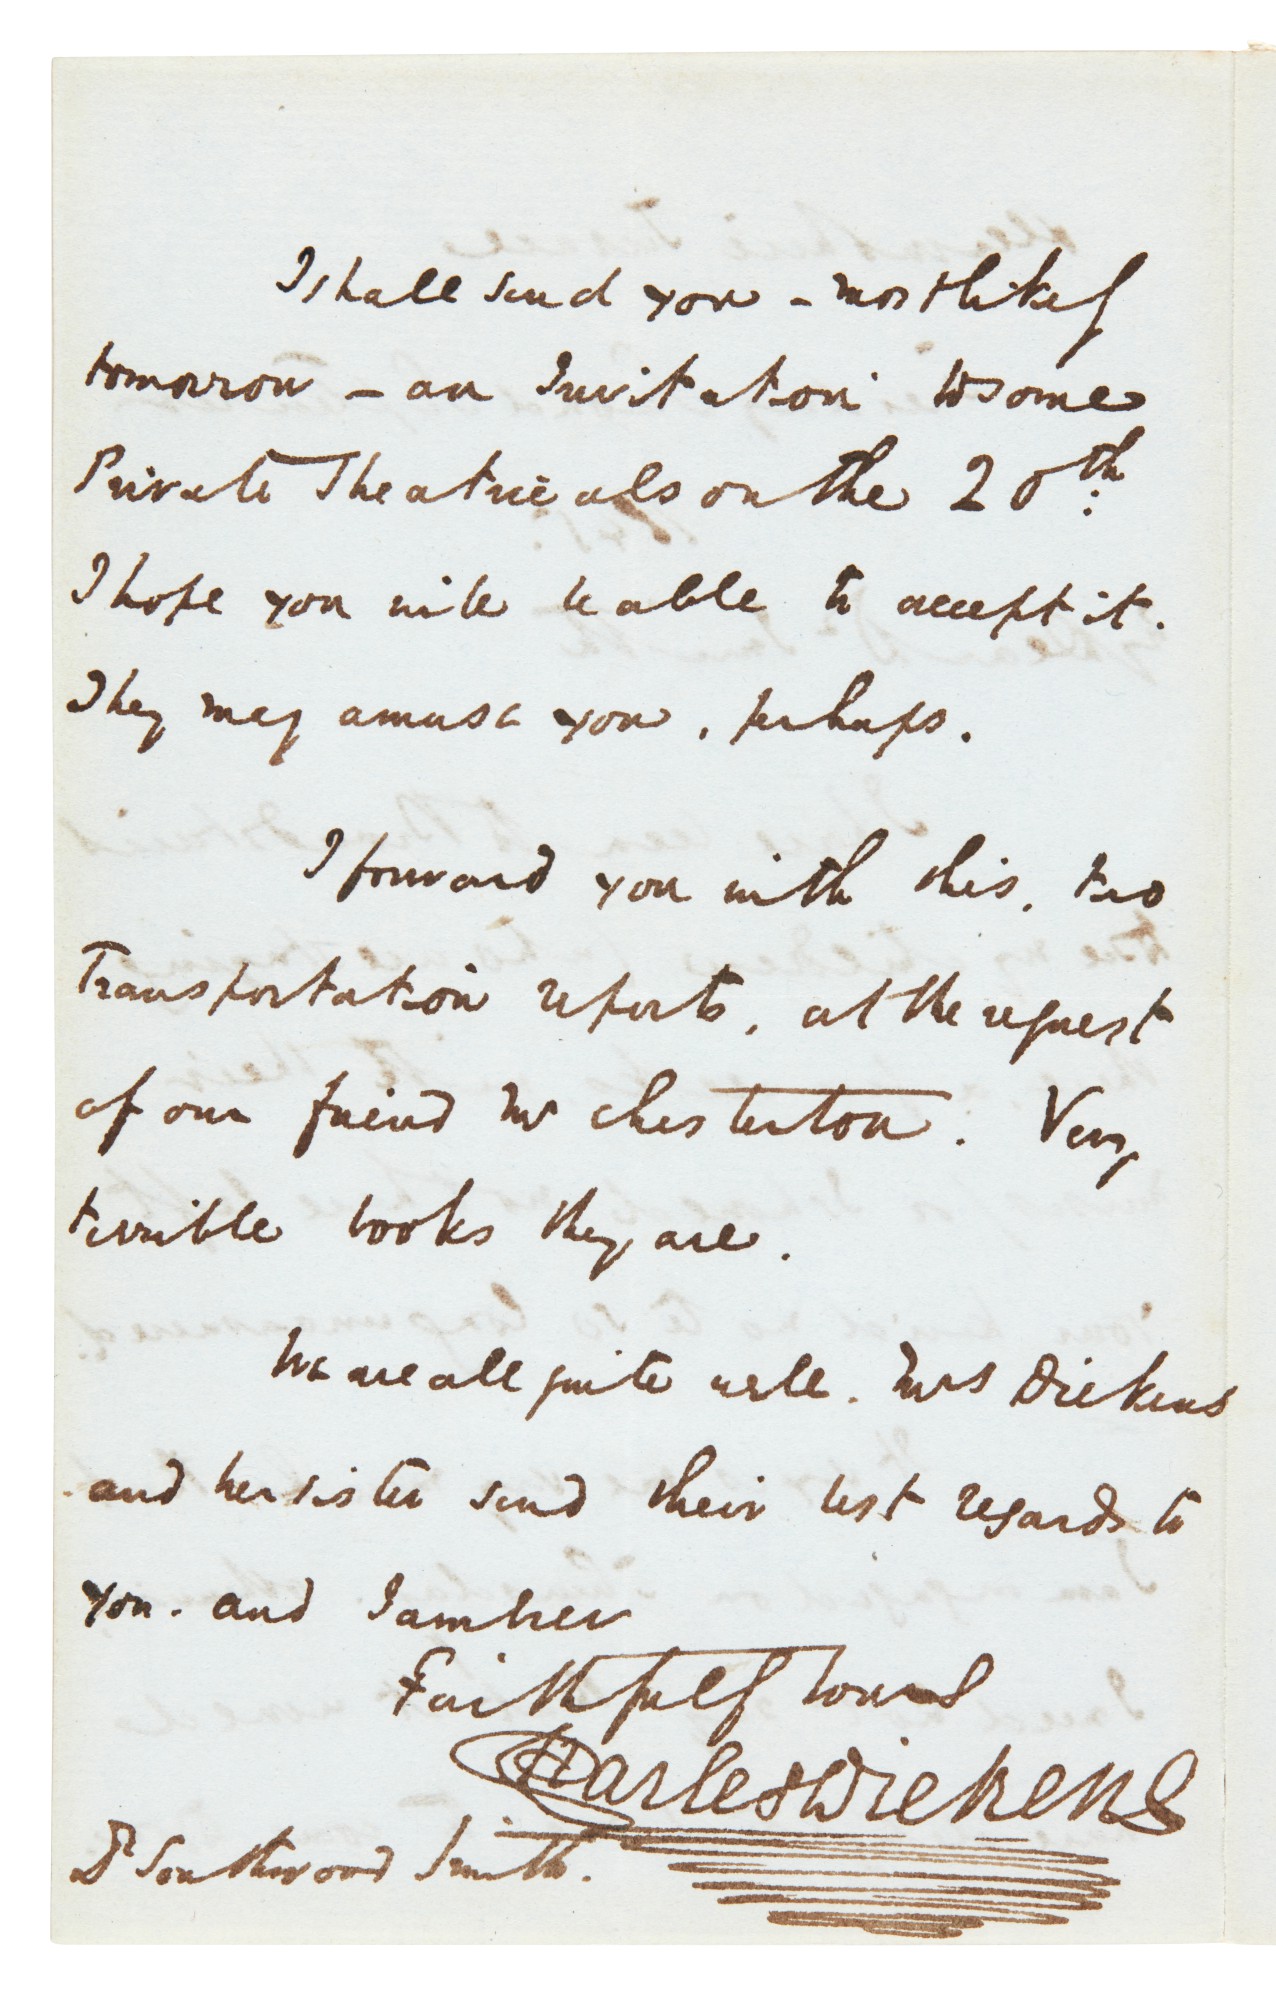 I shall send you – most likely
tomorrow – an Invitation to some
Private Theatricals on the 20th.
I hope you will be able to accept it.
They may amuse you, perhaps.
I forward you with this, two
Transportation reports, at the request
of our friend Mr Chesterton. Very
terrible books they are.
We are all quite well. Mrs Dickens
and her sister send their best regards to
you. and I am ever
Faithfully Yours
Charles Dickens
Dr Southwood Smith.